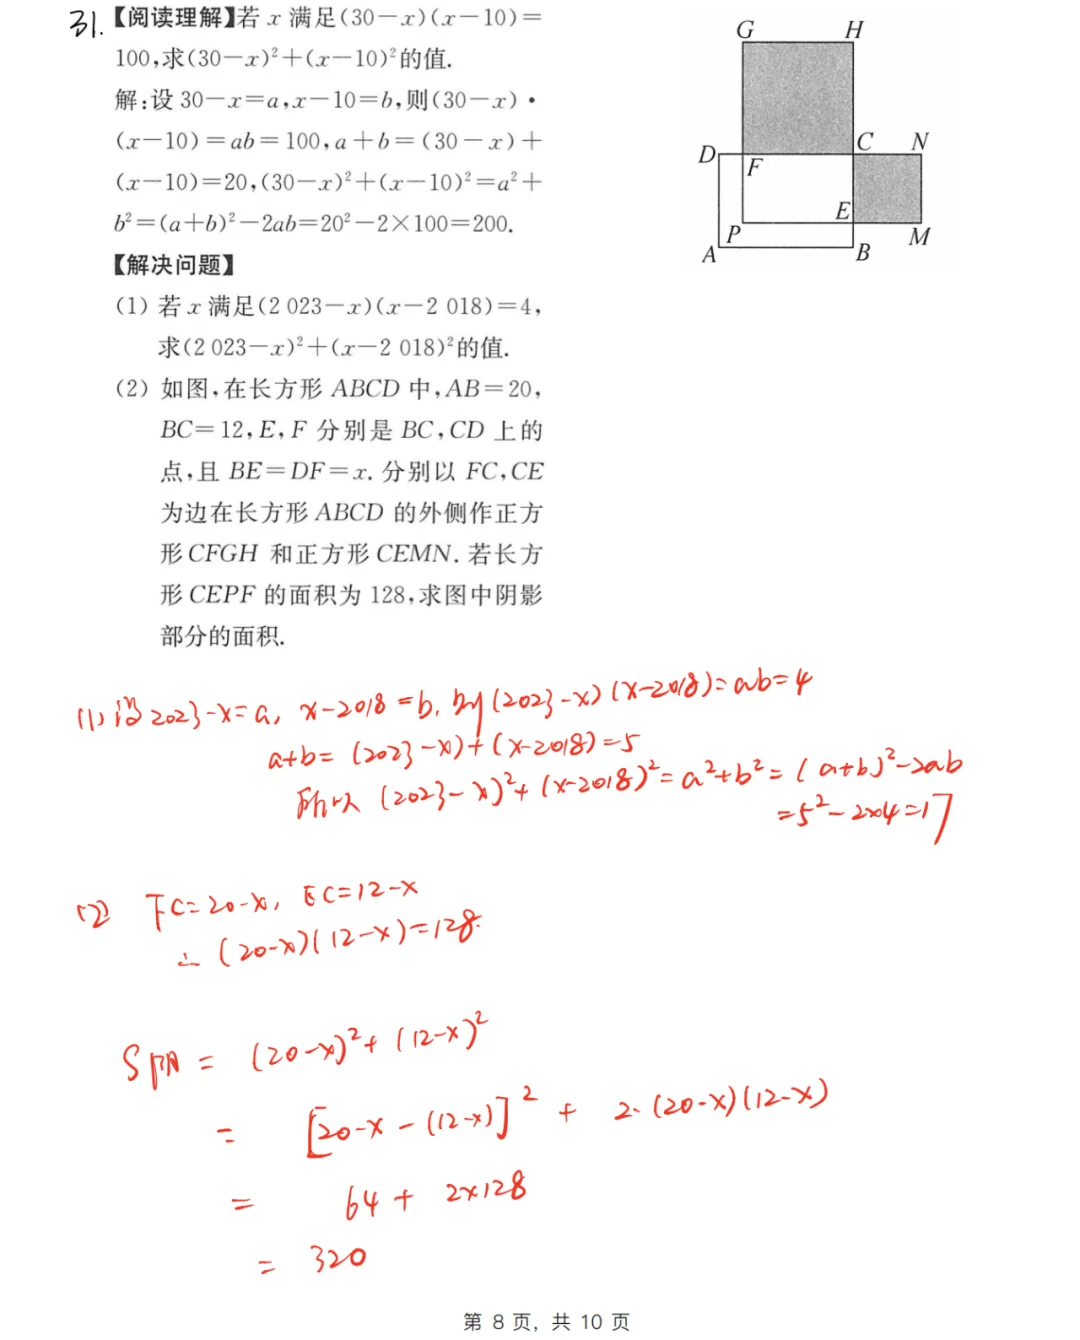 31.【阅读理解】若 x 满足(30-x)(x-10)=
100,求(30-x)²+(x-10)²的值.
解:设 30-x=a,x-10=b,则(30-x)·
(x-10)=ab=100,a+b=(30-x)+
(x-10)=20,(30-x)²+(x-10)²=a²+
b²=(a+b)²-2ab=20²-2×100=200.
【解决问题】
(1) 若 x 满足(2 023-x)(x-2 018)=4,
求(2 023-x)²+(x-2 018)²的值.
(2) 如图,在长方形 ABCD 中,AB=20,
BC=12,E,F 分别是 BC,CD 上的
点,且 BE=DF=x. 分别以 FC,CE
为边在长方形 ABCD 的外侧作正方
形 CFGH 和正方形 CEMN. 若长方
形 CEPF 的面积为 128,求图中阴影
部分的面积.
G H
D F C N
P E M
A B
(1) 设 2023-x=a, x-2018=b, 则 (2023-x)(x-2018)=ab=4
a+b=(2023-x)+(x-2018)=5
所以 (2023-x)²+(x-2018)²=a²+b²=(a+b)²-2ab
=5²-2×4=17
(2) FC=20-x, EC=12-x
∴ (20-x)(12-x)=128.
S阴 = (20-x)²+(12-x)²
= [20-x-(12-x)]² + 2·(20-x)(12-x)
= 64 + 2×128
= 320
第 8 页, 共 10 页